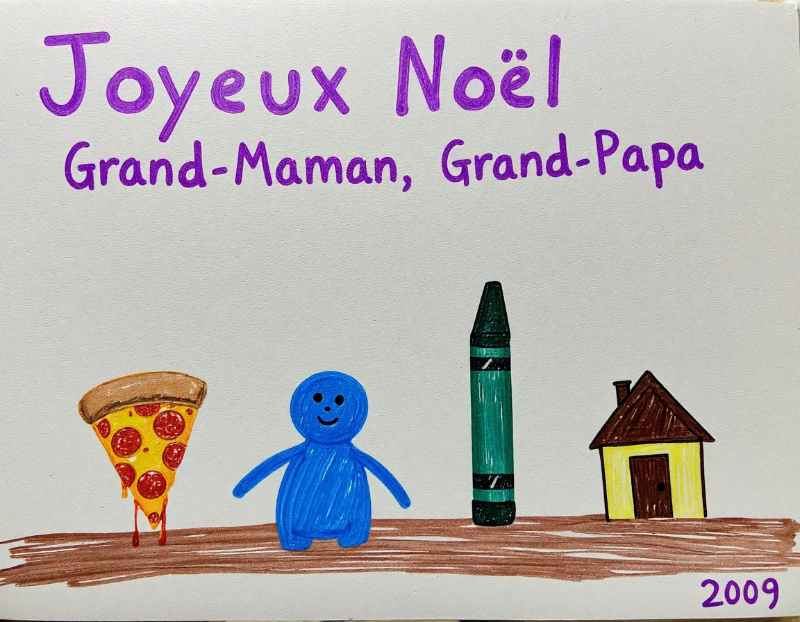 Joyeux Noël
Grand-Maman, Grand-Papa
2009